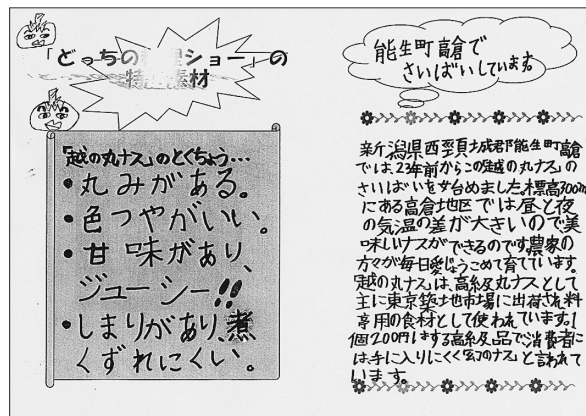 「どっちの料理ショー」の
特選素材
「越の丸ナス」のとくちょう…
・丸みがある。
・色つやがいい。
・甘味があり、
ジューシー!!
・しまりがあり、煮
くずれにくい。
能生町高倉で
さいばいしています。
新潟県西頸城郡能生町高倉
では、23年前からこの「越の丸ナス」の
さいばいを始めました。標高300m
にある高倉地区では昼と夜
の気温の差が大きいので美
味しいナスができるのです。農家の
方々が毎日愛じょうこめて育てています。
「越の丸ナス」は、高級丸ナスとして
主に東京築地市場に出荷され料
亭用の食材として使われています。1
個200円もする高級品で消費者に
は手に入りにくく「幻のナス」と言われて
います。